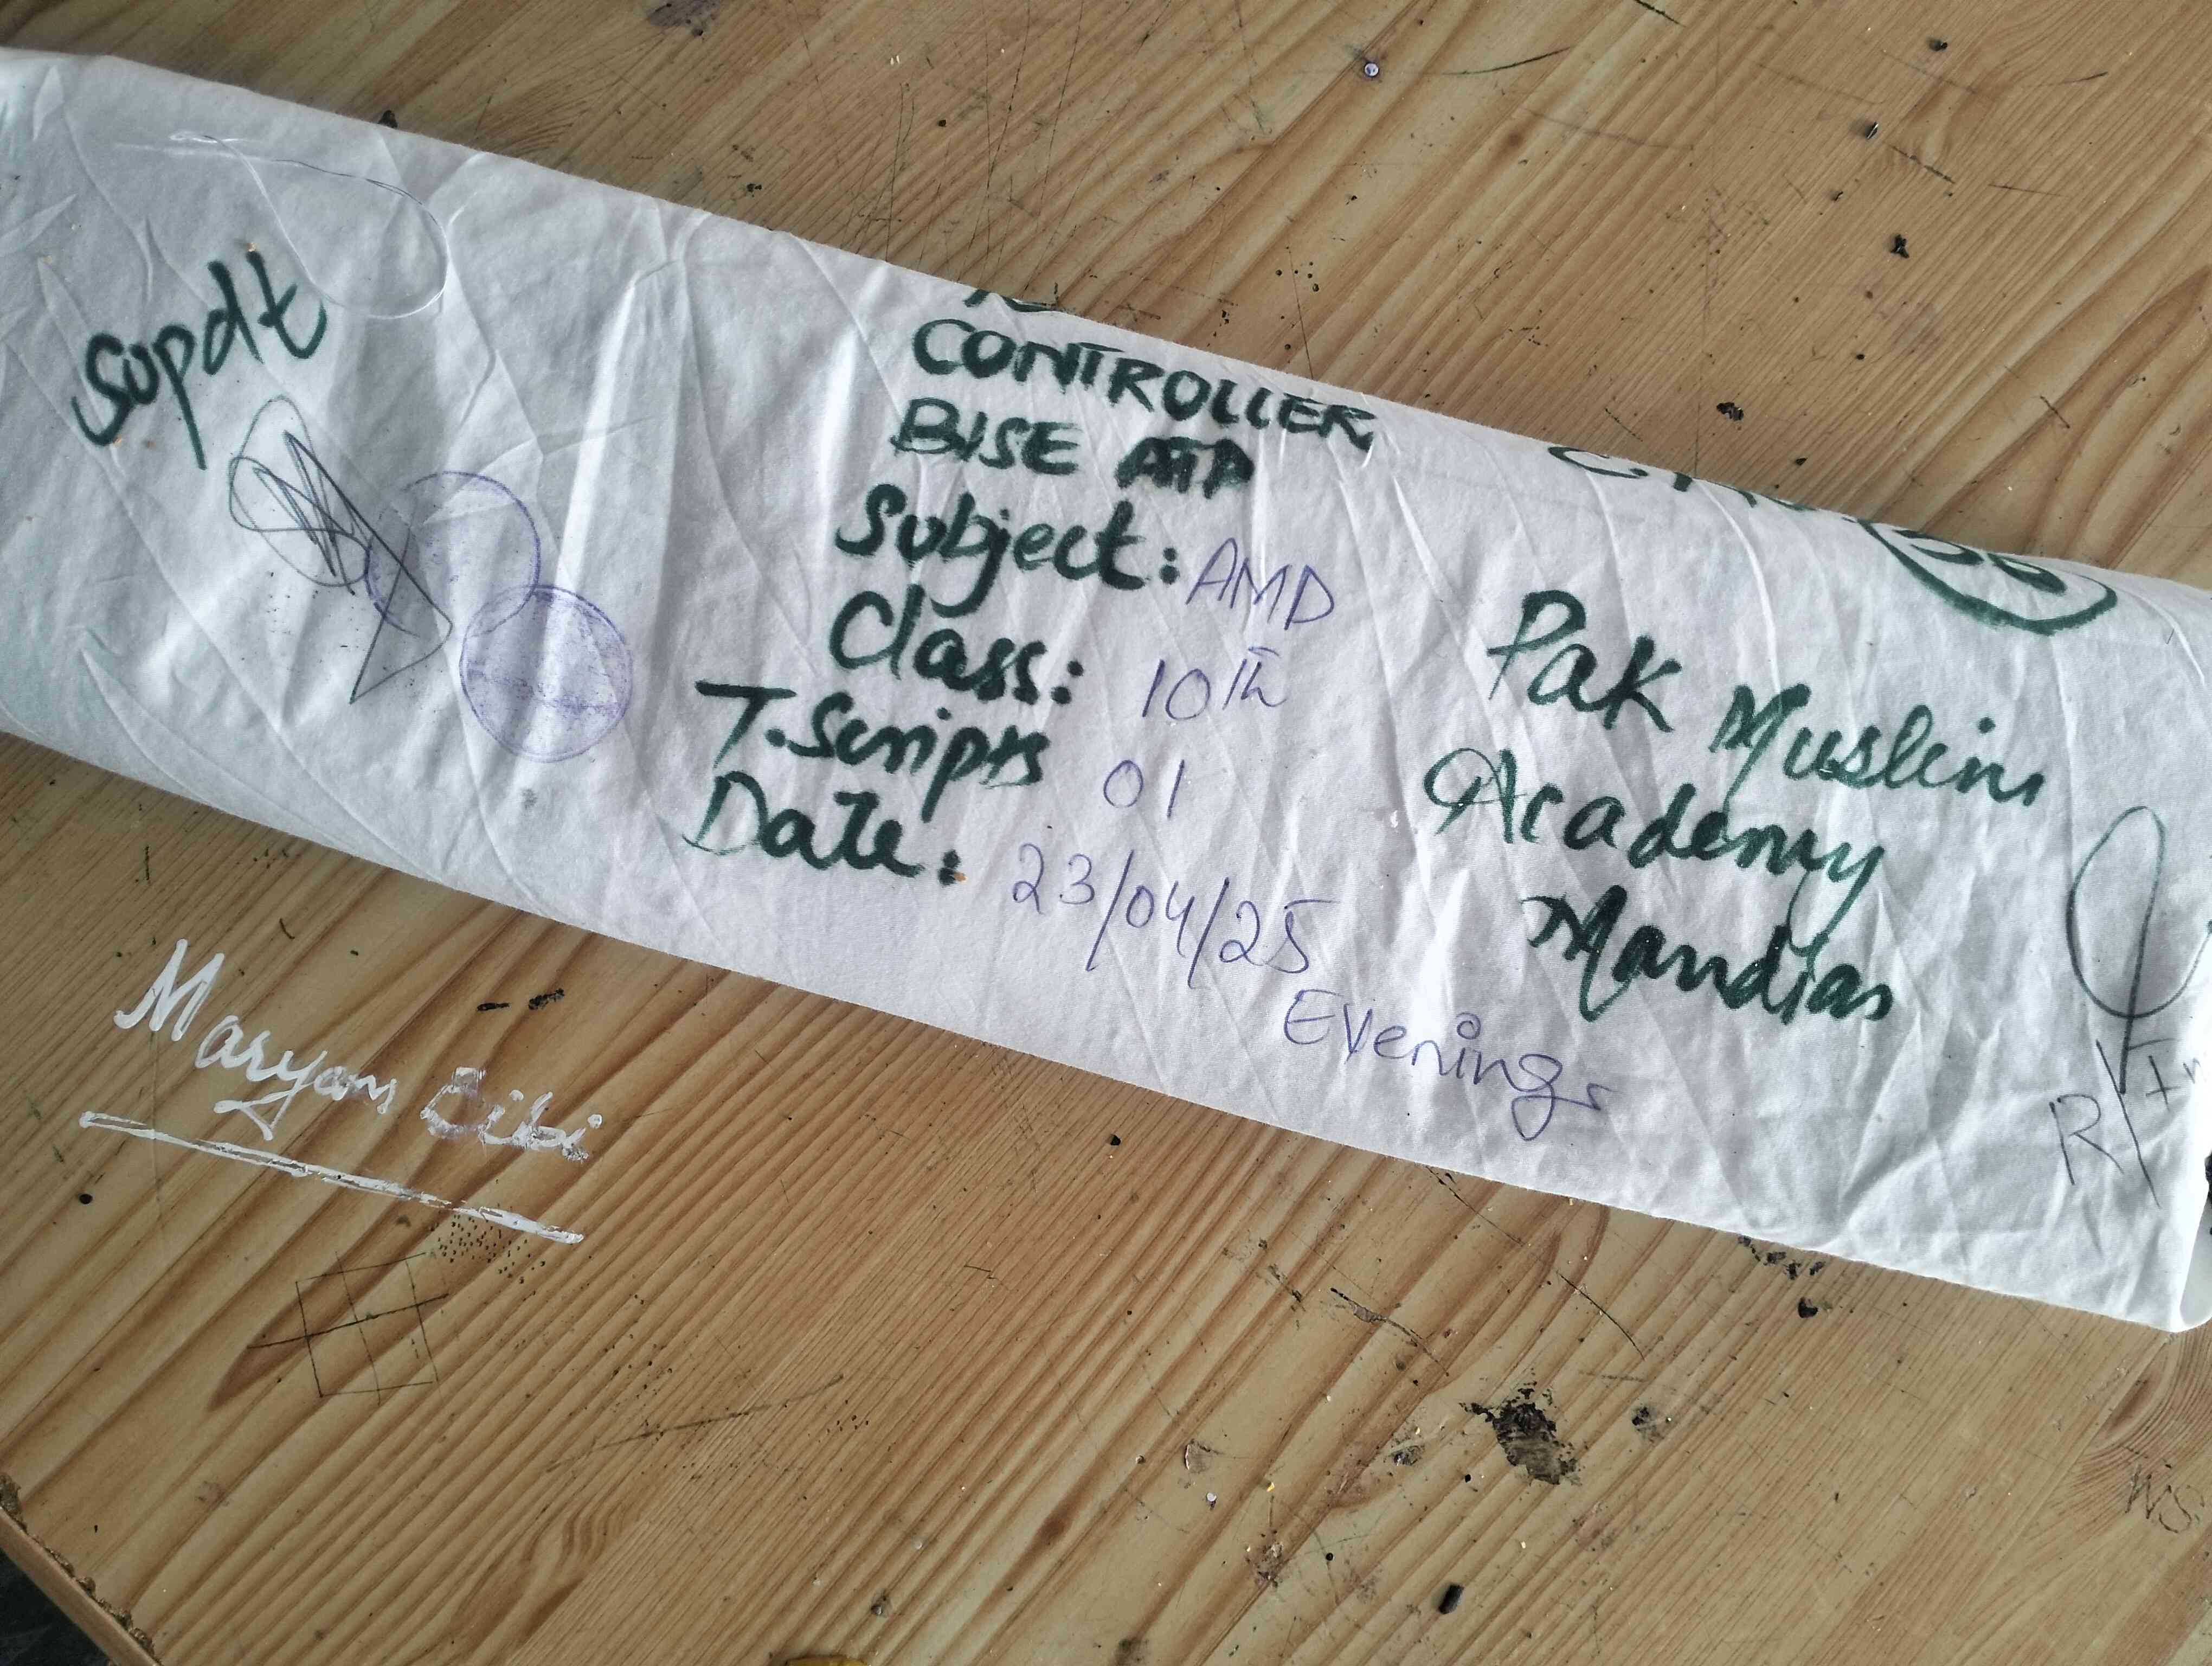 Supdt
CONTROLLER
BISE ATD
Subject: AMD
Class: 10th
T.Scripts 01
Date: 23/04/25
Evening
Pak Muslim
Academy
Mandian
Maryam Bibi
WS